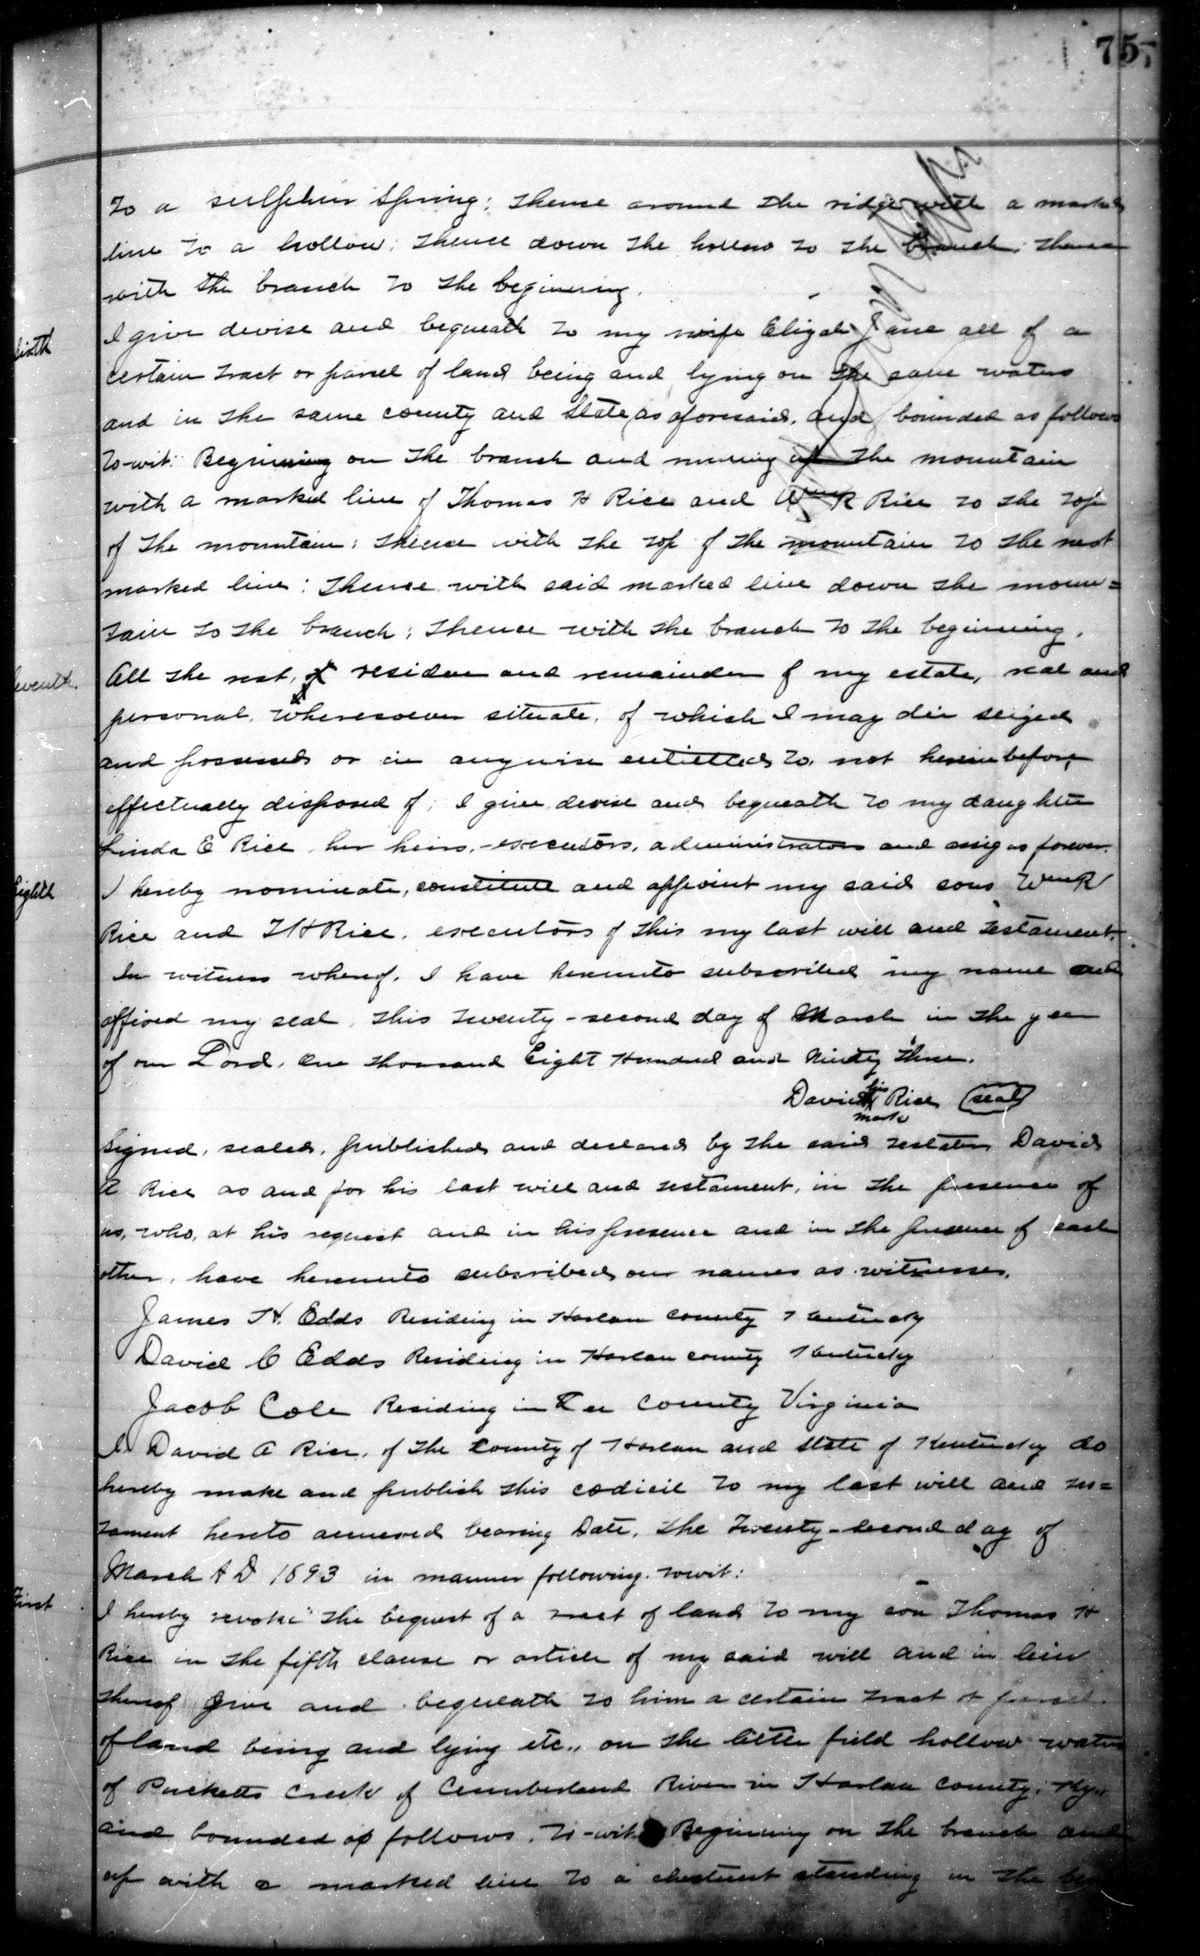 75
to a sulpher Spring; thence around the ridge with a marked
line to a hollow; thence down the hollow to the branch; thence
with the branch to the beginning.
Sixth
I give devise and bequeath to my wife Elizah Jane all of a
certain tract or parcel of land being and lying on the same waters
and in the same county and State as aforesaid, and bounded as follows
to-wit: Beginning on the branch and running up the mountain
with a marked line of Thomas H Rice and Wm R Rice to the top
of the mountain; thence with the top of the mountain to the next
marked line; thence with said marked line down the moun=
tain to the branch; thence with the branch to the beginning.
Seventh.
All the rest, residue and remainder of my estate, real and
personal, wheresoever situate, of which I may die seized
and possessed or in anywise entitled to, not hereinbefore
effectually disposed of, I give, devise and bequeath to my daughter
Linda E Rice, her heirs, executors, administrators and assigns forever.
Eighth
I hereby nominate, constitute and appoint my said sons Wm R
Rice and T H Rice, executors of this my last will and testament.
In witness whereof, I have hereunto subscribed my name and
affixed my seal, this twenty-second day of March in the year
of our Lord, One thousand Eight Hundred and Ninety Three.
his
David Rice seal
mark
Signed, sealed, published and declared by the said testator David
A Rice as and for his last will and testament, in the presence of
us, who, at his request and in his presence and in the presence of each
other, have hereunto subscribed our names as witnesses.
James H. Edds Residing in Harlan County Kentucky
David C Edds Residing in Harlan county Kentucky
Jacob Cole Residing in Lee County Virginia
I, David A Rice, of the County of Harlan and State of Kentucky do
hereby make and publish this codicil to my last will and tes=
tament hereto annexed bearing Date, the Twenty-second day of
March A D 1893 in manner following. towit:
First
I hereby revoke the bequest of a tract of land to my son Thomas H
Rice in the fifth clause or article of my said will and in lieu
thereof give and bequeath to him a certain tract or parcel
of land being and lying etc., on the little field hollow waters
of Pucketts Creek of Cumberland River in Harlan County, Ky.,
and bounded as follows, to-wit Beginning on the branch and
up with a marked line to a chestnut standing in the